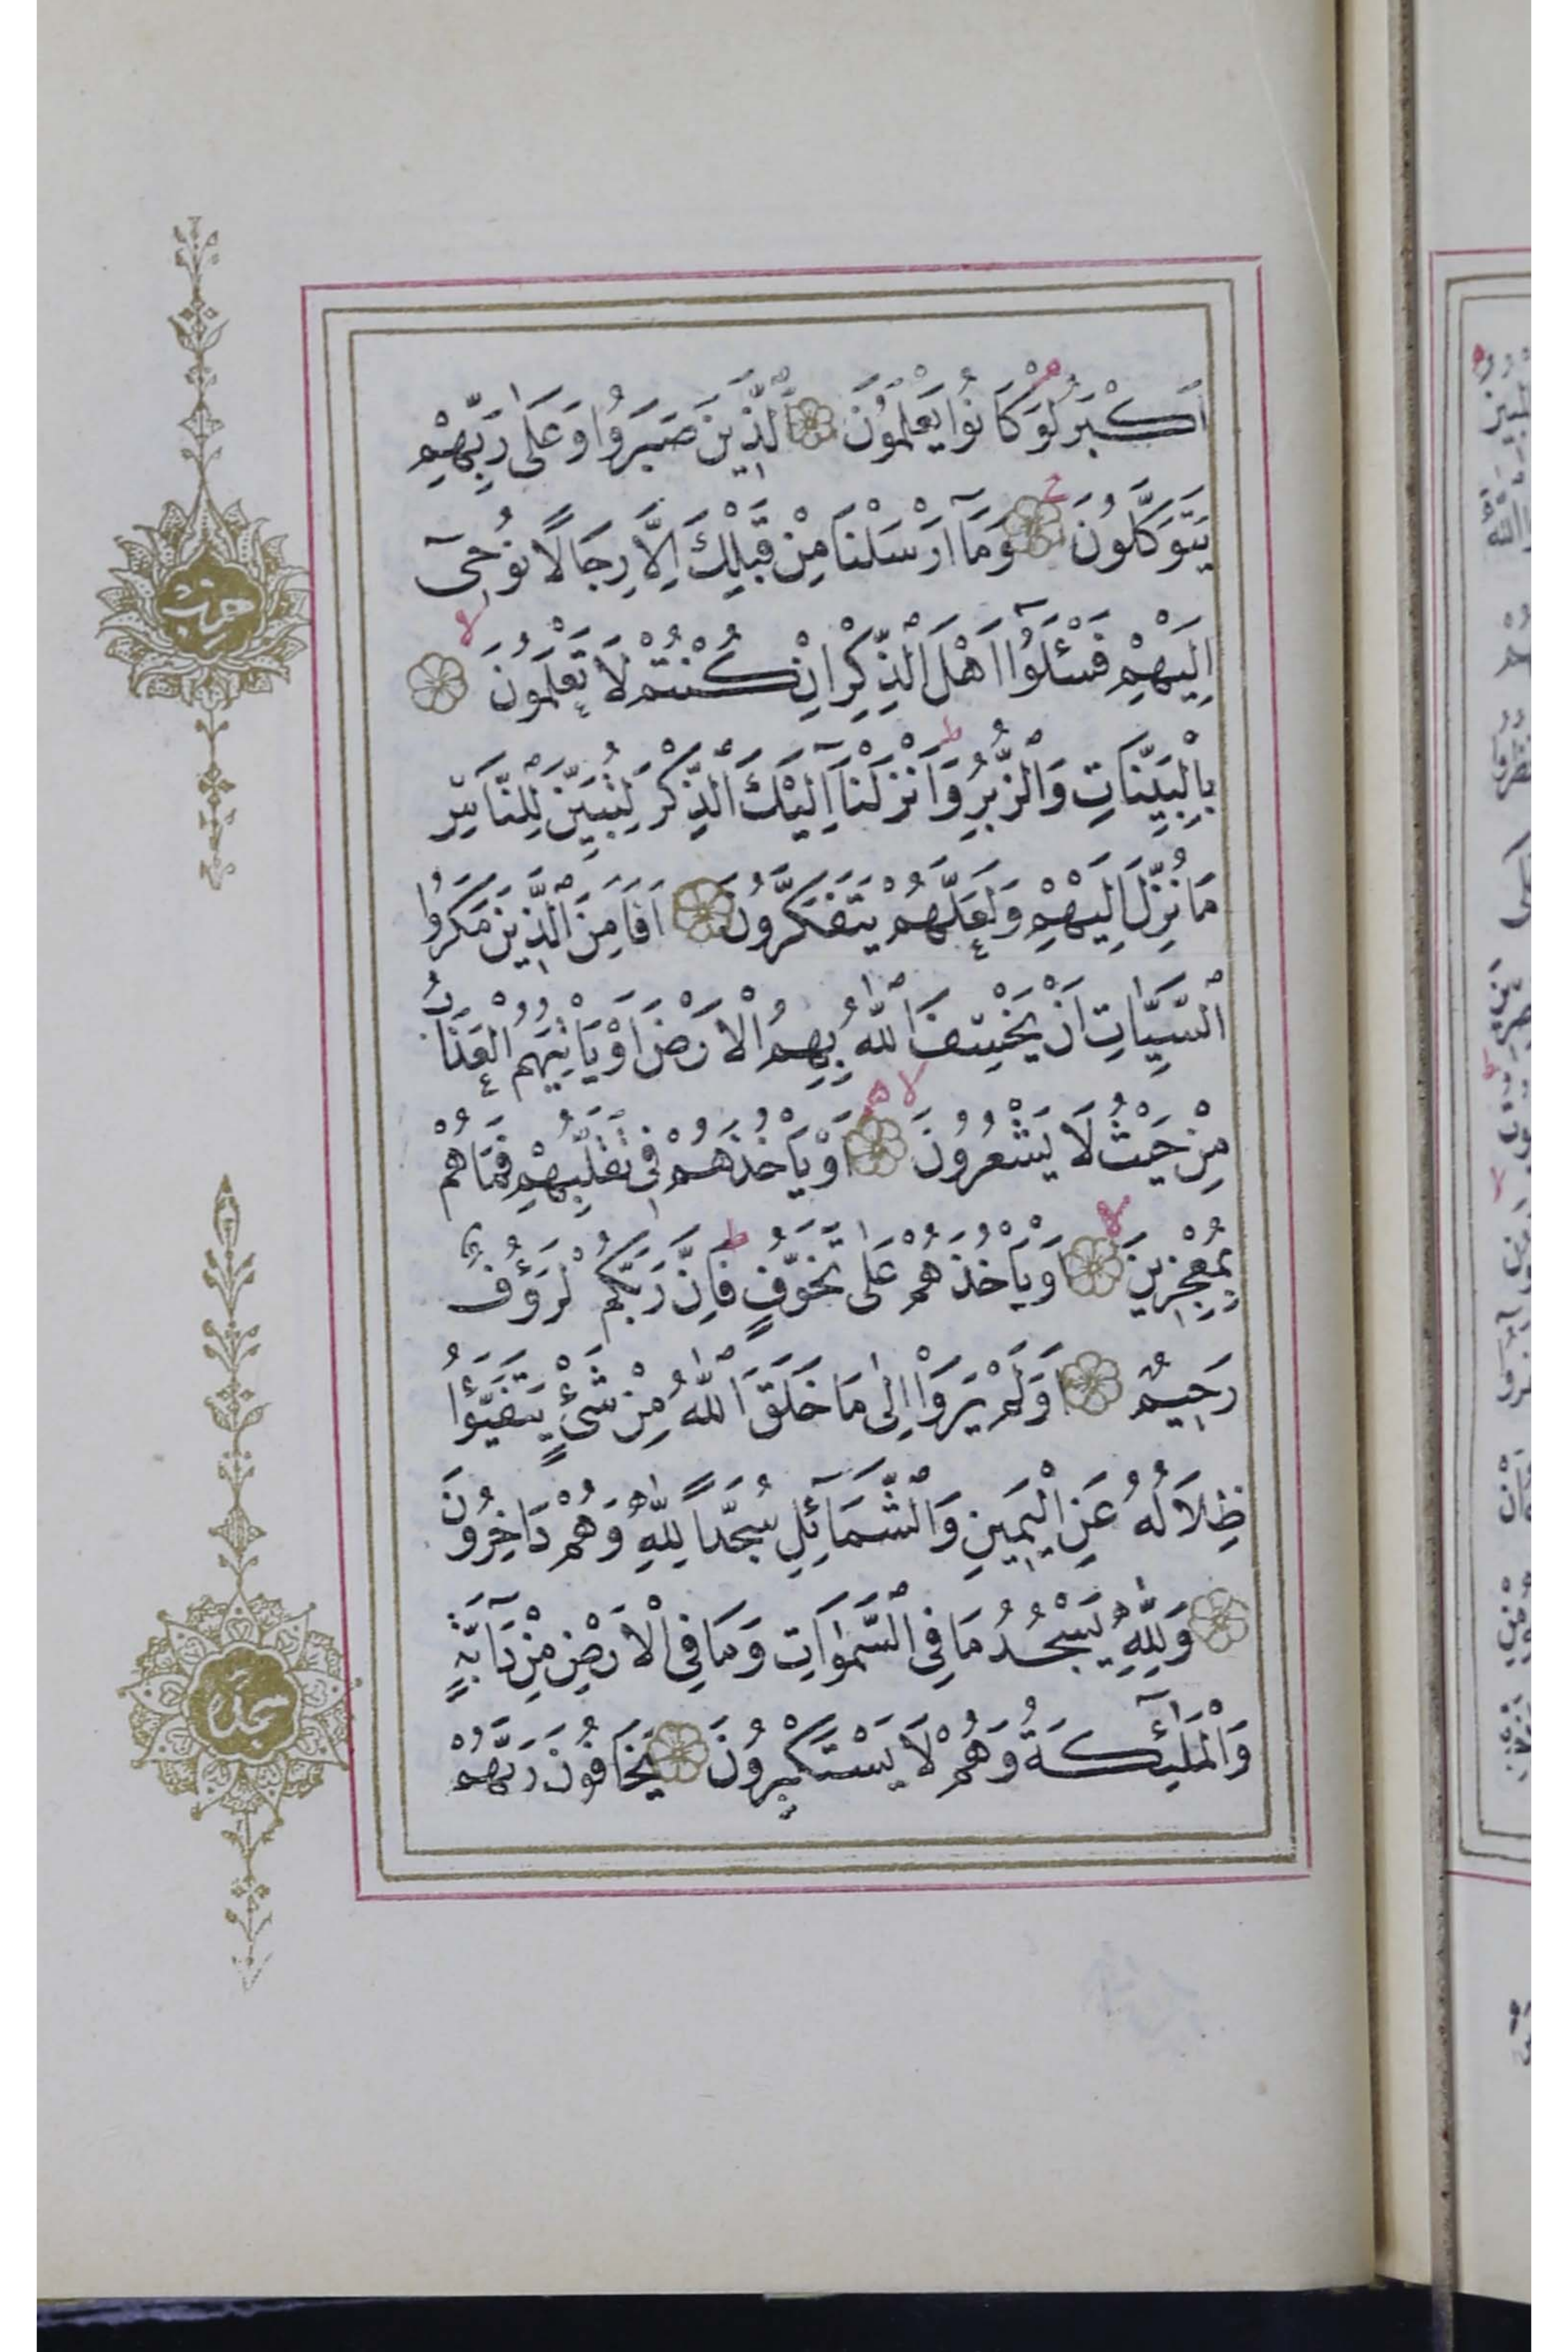 اَكْبَرُ لَوْ كَانُوا يَعْلَمُونَ اَلَّذِينَ صَبَرُوا وَعَلٰى رَبِّهِمْ
يَتَوَكَّلُونَ وَمَآ اَرْسَلْنَا مِنْ قَبْلِكَ اِلَّا رِجَالًا نُوحِىٓ
اِلَيْهِمْ فَسْئَلُوٓا اَهْلَ الذِّكْرِ اِنْ كُنْتُمْ لَا تَعْلَمُونَ
بِالْبَيِّنَاتِ وَالزُّبُرِ وَاَنْزَلْنَآ اِلَيْكَ الذِّكْرَ لِتُبَيِّنَ لِلنَّاسِ
مَا نُزِّلَ اِلَيْهِمْ وَلَعَلَّهُمْ يَتَفَكَّرُونَ اَفَاَمِنَ الَّذِينَ مَكَرُوا
السَّيِّاٰتِ اَنْ يَخْسِفَ اللّٰهُ بِهِمُ الْاَرْضَ اَوْ يَاْتِيَهُمُ الْعَذَابُ
مِنْ حَيْثُ لَا يَشْعُرُونَ اَوْ يَاْخُذَهُمْ فِى تَقَلُّبِهِمْ فَمَا هُمْ
بِمُعْجِزِينَ اَوْ يَاْخُذَهُمْ عَلٰى تَخَوُّفٍ فَاِنَّ رَبَّكُمْ لَرَؤُفٌ
رَحِيمٌ اَوَلَمْ يَرَوْا اِلٰى مَا خَلَقَ اللّٰهُ مِنْ شَىْءٍ يَتَفَيَّؤُا
ظِلَالُهُ عَنِ الْيَمِينِ وَالشَّمَآئِلِ سُجَّدًا لِلّٰهِ وَهُمْ دَاخِرُونَ
وَلِلّٰهِ يَسْجُدُ مَا فِى السَّمٰوَاتِ وَمَا فِى الْاَرْضِ مِنْ دَآبَّةٍ
وَالْمَلٰٓئِكَةُ وَهُمْ لَا يَسْتَكْبِرُونَ يَخَافُونَ رَبَّهُمْ
حزب
سجدة